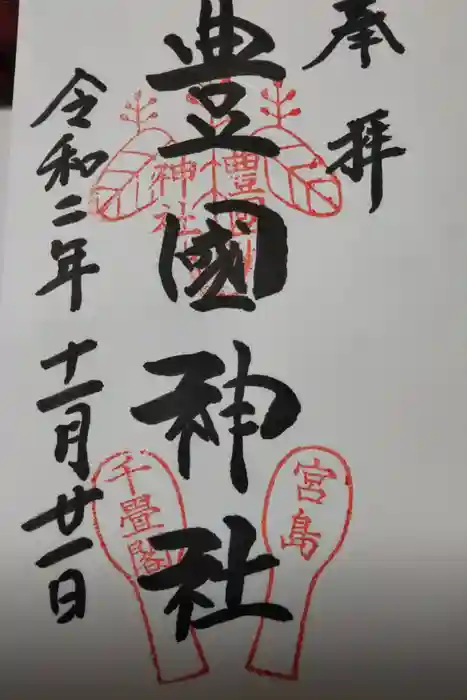 奉拝
豊國神社
令和二年十一月廿一日
豊國
神社
宮島
千畳閣